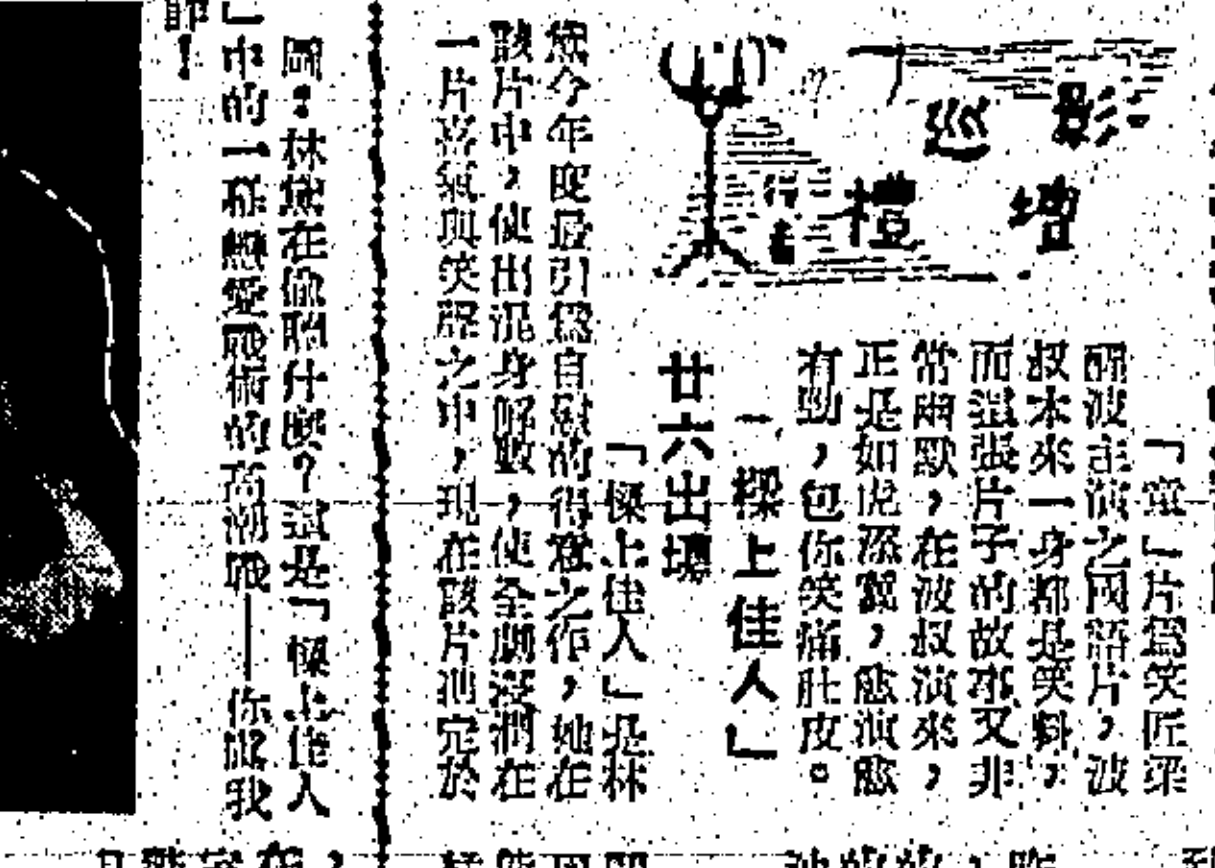 影壇
巡禮
行者
「童」片爲笑匠梁
醒波主演之國語片，波
叔本來一身都是笑料，
而這張片子的故事又非
常幽默，在波叔演來，
正是如虎添翼，愈演愈
有勁，包你笑痛肚皮。
「樑上佳人」
廿六出壇
「樑上佳人」是林
黛今年度最引爲自慰的得意之作，她在
該片中，使出混身解數，使全劇浸潤在
一片喜氣與笑聲之中，現在該片池完於
圖：林黛在偷聽什麼？這是「樑上佳人
」中的一種戀愛戰術的高潮戰——你跟我